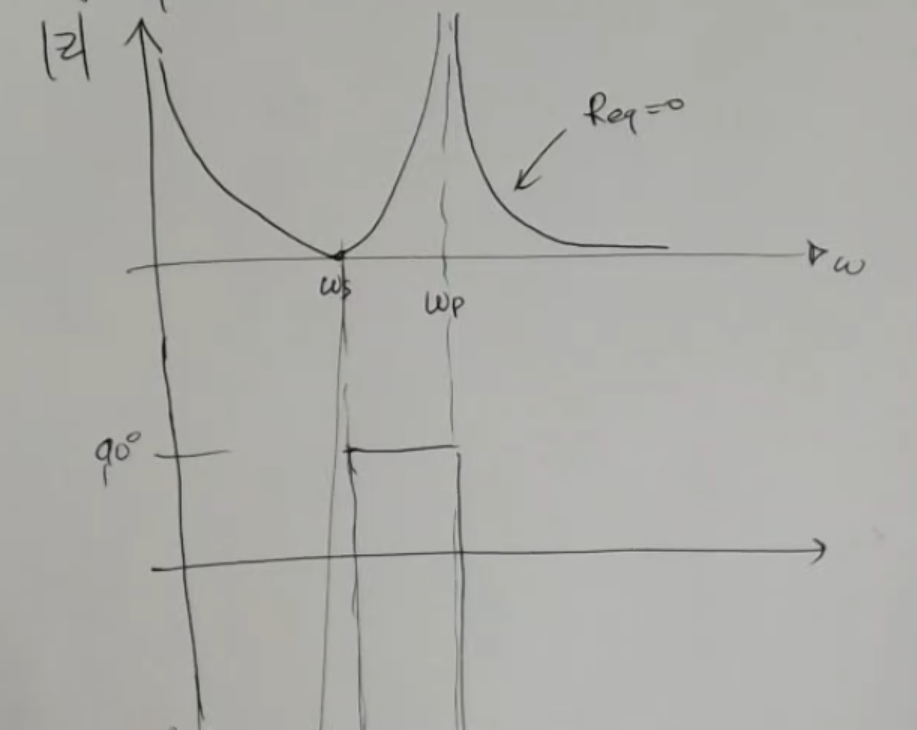 |Z|
Req=0
ω
ωs
ωp
90°